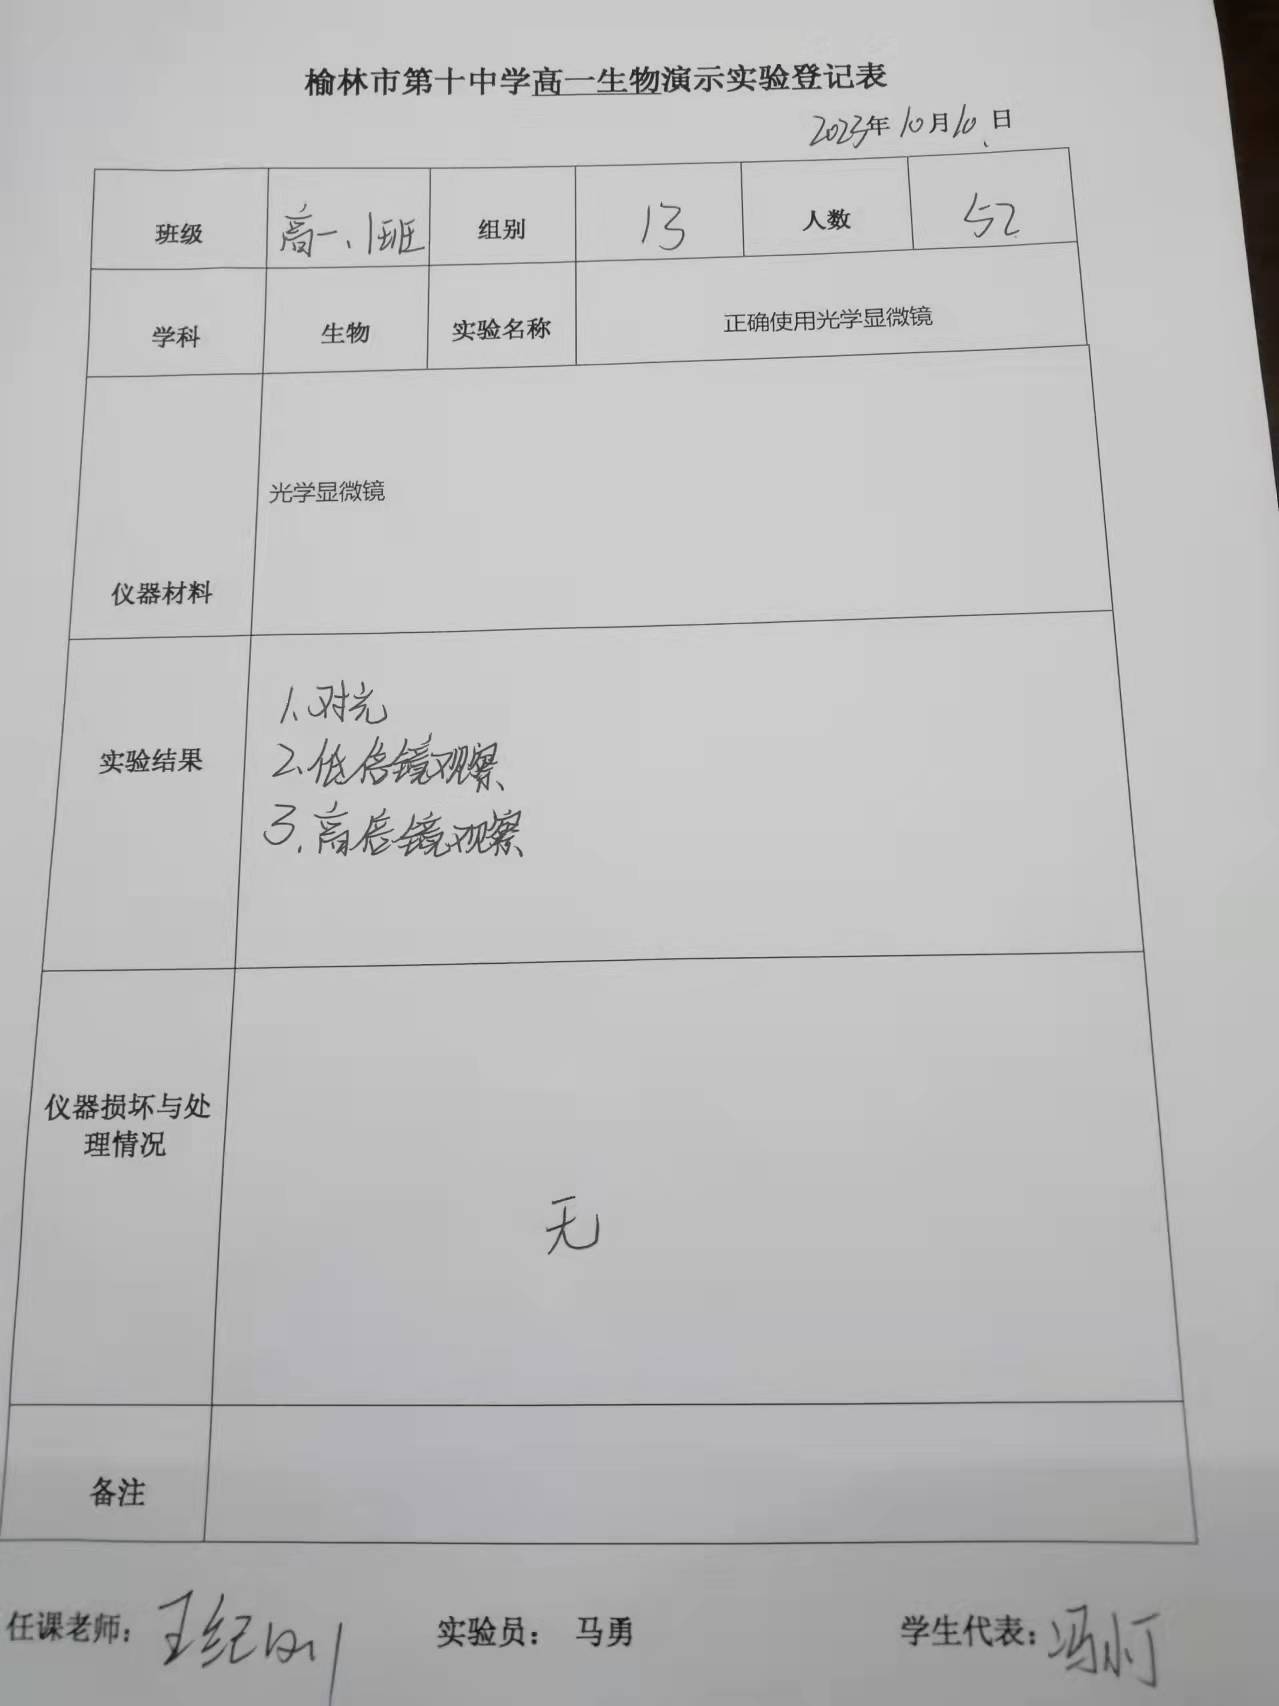 榆林市第十中学高一生物演示实验登记表
2023年10月10日
班级 高一、1班 组别 13 人数 52
学科 生物 实验名称 正确使用光学显微镜
仪器材料 光学显微镜
实验结果
1、对光
2、低倍镜观察
3、高倍镜观察
仪器损坏与处
理情况
无
备注
任课老师： 王纪刚 实验员： 马勇 学生代表：冯